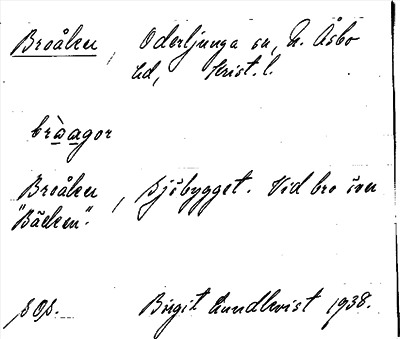 Broåker, Oderljunga sn, N. Åsbo
hd, Krist. l.
bràagor
Broåker, Sjöbygget. Vid bro över
"Bäcken".
s Os. Birgit Lundkvist 1938.